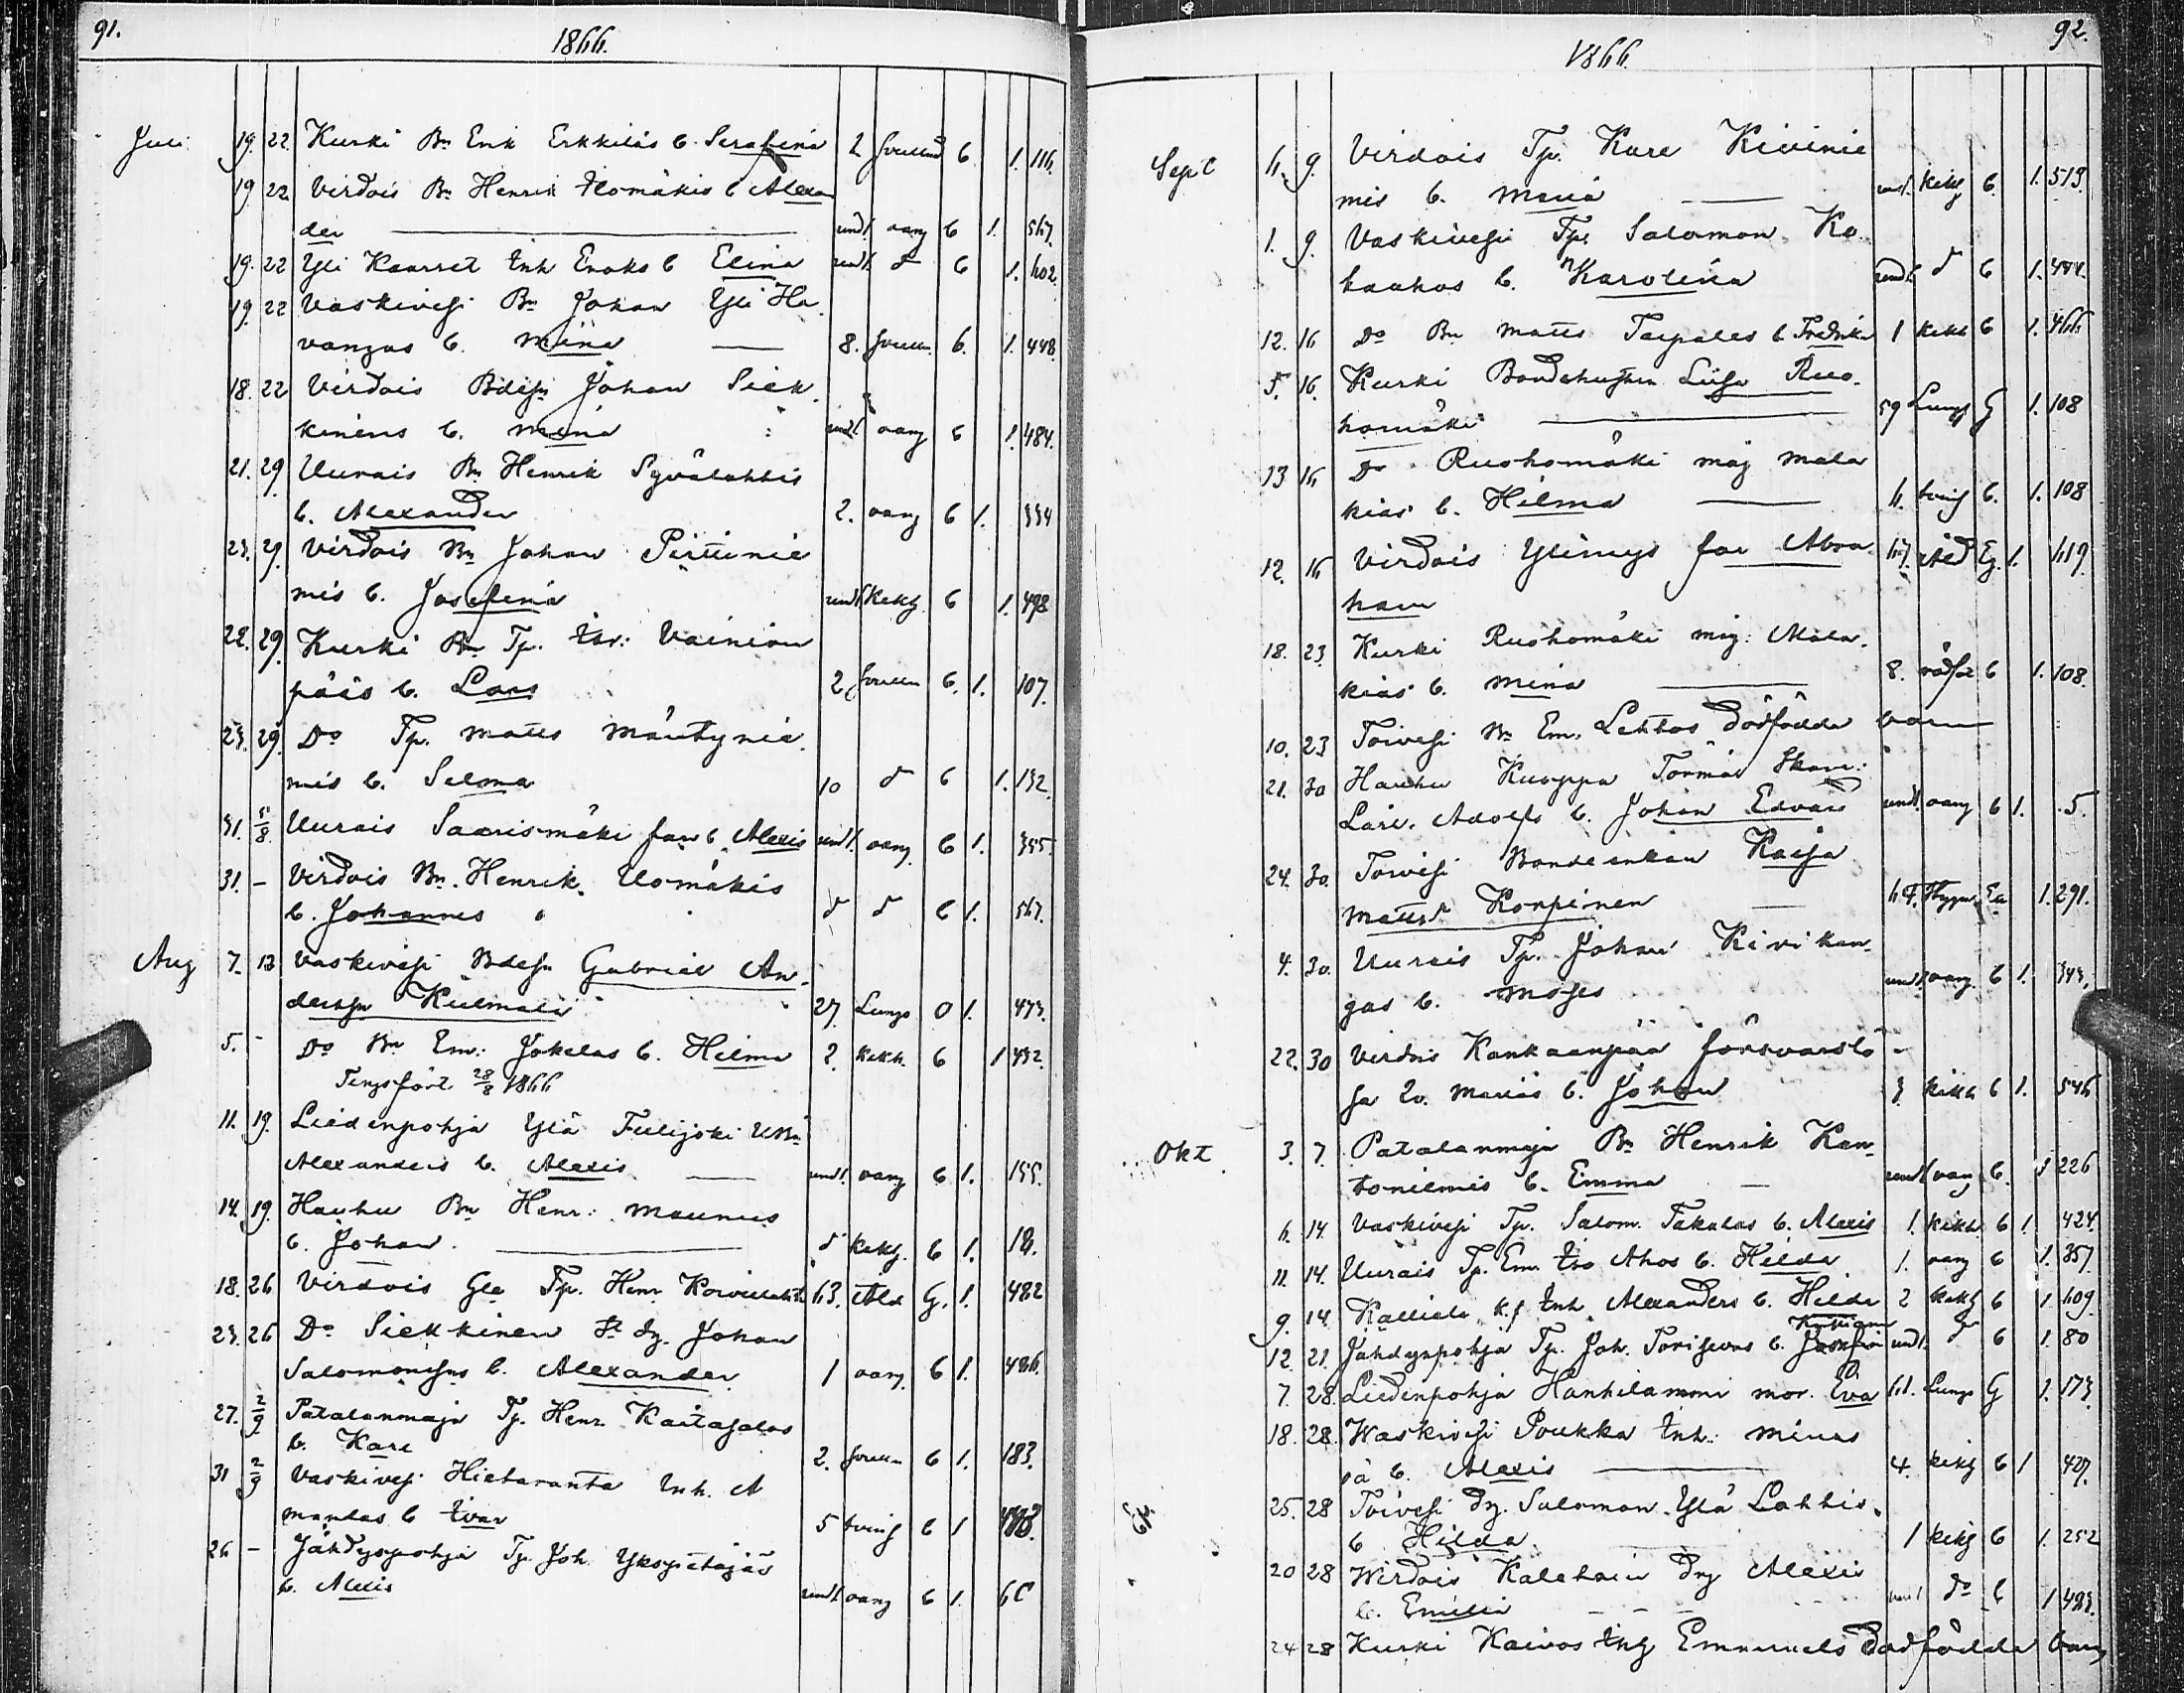 91.
1866.
Juli 19. 22. Kurki Bn Erik Erkkiläs b. Serafina 2 6 1. 116.
19 22 Virdois Bn Henrik Uomäkis b Alexan
der und1. oang 6 1. 567.
19. 22 Yli Kaarret Inh Enoks b Elina und1. d 6 1. 602.
19. 22 Vaskivesi Bn Johan Yli Ha
vangas b. Mina 8. 6. 1. 448.
18. 22 Virdois Bdesn Johan Siek
kinens b. Mina und1 oang 6 1. 484.
21. 29 Uurais Bn Henrik Syvälahtis
b. Alexander 2. oang 6 1. 334
23. 29. Virdois Bn Johan Pirttinie
mis b. Josefina und1 kikh. 6 1. 498
22. 29. Kurki Bn Tp. Väiniön
pääs b. Lars 2 6. 1. 107.
23. 29. Do Tp. Matts Mäntynie
mis b. Selma 10 d 6 1. 132.
31. 5/8 Uurais Saarismäki b. Alexis und1. oang. 6 1. 355.
31. – Virdois Bn. Henrik Uomäkis
b. Johannes d d 6 1. 567.
Aug 7. 12 Vaskivesi Bdesn Gabriel An
dersson Kulmala 27. Lungs O 1. 473.
5. - Do Bn Em: Jokelas b. Hilma 2. kikh. 6 1 432.
28/8 1866
11. 19. Liedenpohja Ylä Tulijoki
Alexanders b. Alexis und1. oang 6 1. 155.
14. 19. Hauhu Bn Henr: Maunus
b. Johan. d kikh. 6 1. 16.
18. 26 Virdois Gle Tp. Henr. 63. Åld G. 1. 482
23. 26 Do Siekkinen Dg. Johan
Salomonsons b. Alexander 1 oang. 6 1. 486.
27. 2/9 Patalanmaja Tp. Henr. Kaitajalas
b. Karl 2. 6 1. 183.
31 2/9 Vaskivesi Hietaranta Inh. A
mandas b Ivar 5 bröst 6 1
26 – Jähdyspohja Tp. Joh. Ykspietäjäs
b. Alexis und1. oang 6 1.
92.
1866.
Sept 6. 9. Virdois Tp. Karl Kivinie
mis b. Maria und1. kikh 6. 1. 513.
1. 9. Vaskivesi Tps Salomon Ko
b. Karolina und1. d 6 1. 444.
12. 16 Do Bn Matts Taipales b. Fredrika 1 kikh 6 1. 466
5. 16. Kurki Bondehustrun Lisa Ruo
homäki 59 Lungs G 1. 108
13 16 Do Ruohomäki måg Mala
kias b. Hilma 6. bröst 6. 1. 108
12. 16 Virdois Ylinys far Abra
ham 67. Åld Eg. 1. 619.
18. 23. Kurki Ruohomäki måg. Mala
kias b. Mina 8. rödsot 6 1. 108.
10. 23 Toivesi Bn Em. Lehtos dödfödda barn
21. 30 Hauhu Kuoppa Törmäs
Lars. Adolfs b. Johan Edvard und1. oang 6 1. 5.
24. 30. Toivesi Bondeenkan Kaisa
Mattsdr Korpinen 1. 291.
4. 30. Uurais Tp. Johan Kivikan
gas b. Moses und1. oang. 6 1. 343.
22. 30 Virdois Kankaanpää försvarslö
sa Lo. Marias b. Johan 3 kikh 6 1. 546
Okt. 3. 7. Patalanmaja Bn Henrik Kan
toniemis b. Emma und1 oang 6. 1 226
6. 14. Vaskivesi Tp. Salom. Takalas b. Alexis 1. kikh. 6 1. 424
11. 14. Uurais Tp. Em. Iso Ahos b. Hilda 1. oang 6 1. 357.
9. 14 Kalliala Inh. Alexanders b. Hilda 2 kikh 6 1. 609.
12. 21. Jähdyspohja Tp. Joh. Torisevas b. und1. d 6 1. 80
7. 28. Liedenpohja Hankilammi mor. Eva 61. Lungs G 1. 173.
18. 28. Waskivesi Poukka Inh. Minas
oä b. Alexis 4. kikh 6 1 427.
25. 28 Toivesi Dg. Salomon Ylä Lahtis
b Hilda 1 kikh 6 1. 252
20 28 Wirdois Kalehain Dg Alexis
b. Emilia und1 do 6 1 493.
24 28 Kurki Kaivos Inh Emanuels dödfödda barn